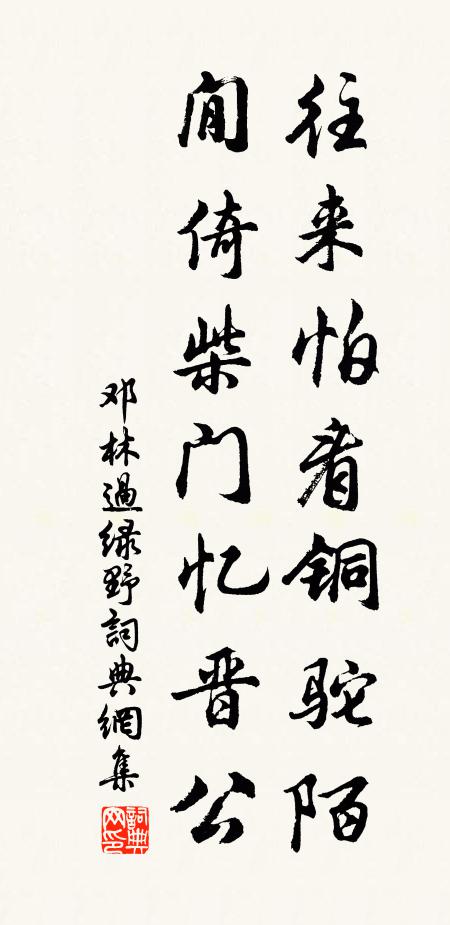 往来怕看铜驼陌
闲倚柴门忆晋公
邓林過绿野詞典網集
詞典
网印